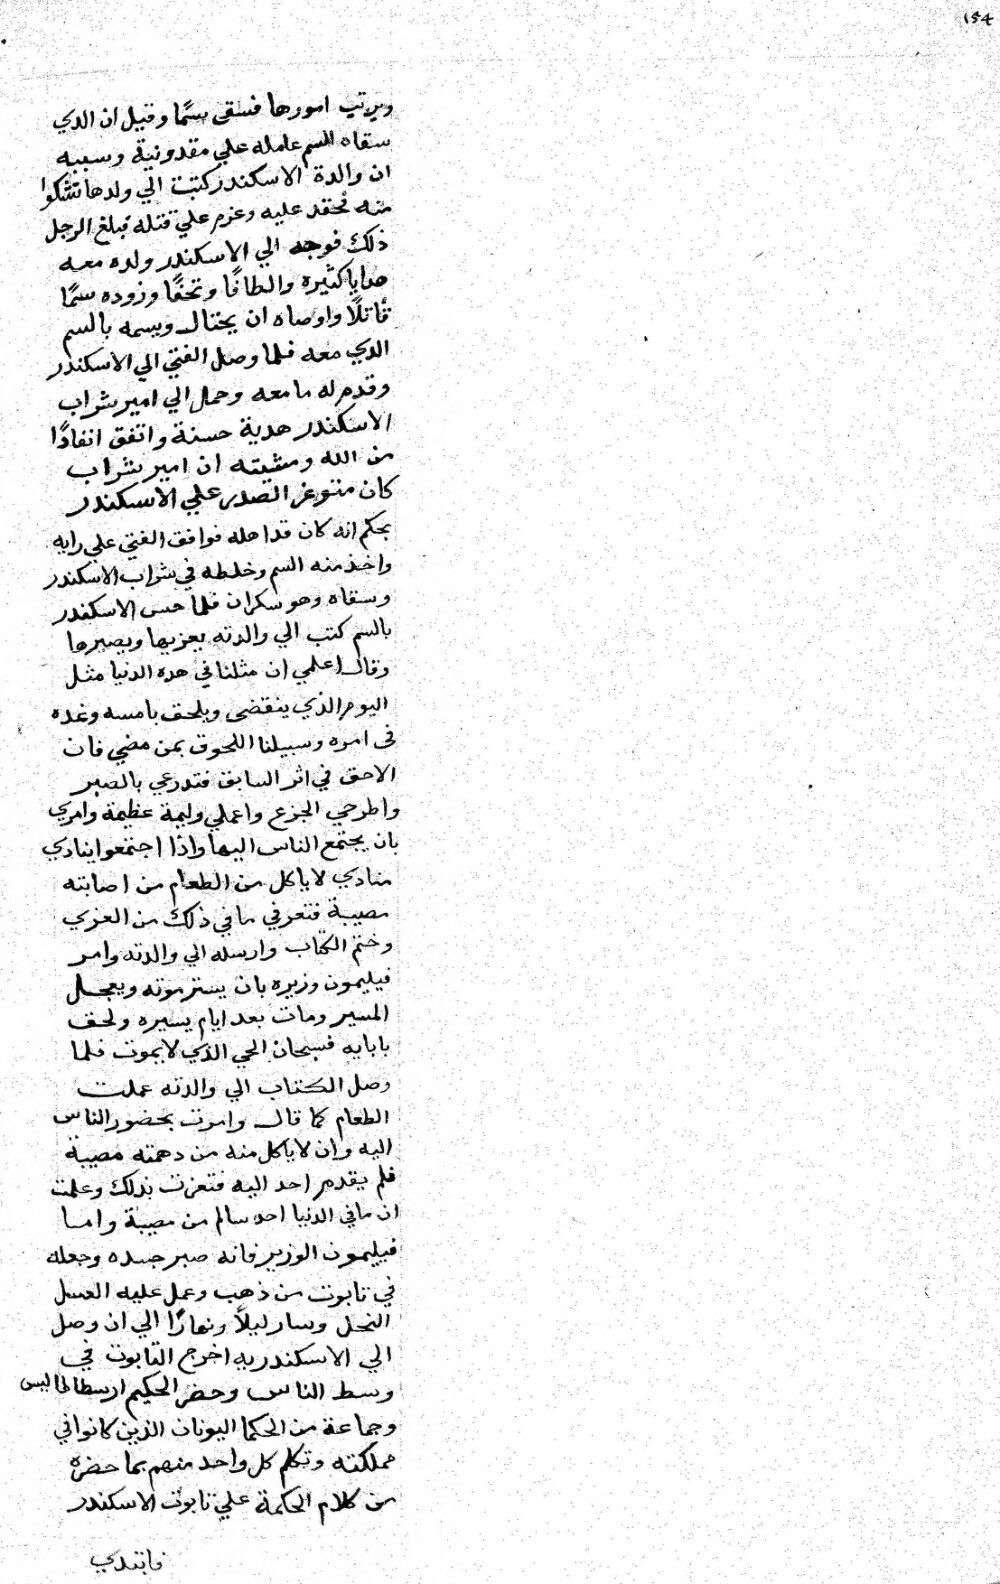 ١٥٤
ويرتب امورها فسقى سمًا وقيل ان الدي
سقاه السم عامله علي مقدونية وسببه
ان والدة الاسكندر كتبت الي ولدها تشكوا
منه فحقد عليه وعزم علي قتله فبلغ الرجل
ذلك فوجه الي الاسكندر ولده معه
هدايا كثيره والطافًا وتحفًا وزوده سمًا
قاتلًا واوصاه ان يحتال ويسمه بالسم
الدي معه فلما وصل الفتي الي الاسكندر
وقدم له ما معه وحمل الي امير شراب
الاسكندر هدية حسنة واتفق انفادًا
من الله ومشيته ان امير شراب
كان متوغر الصدر علي الاسكندر
بحكم انه كان قد اهله فوافق الفتي علي رايه
واخذ منه السم وخلطه في شراب الاسكندر
وسقاه وهو سكران فلما حس الاسكندر
بالسم كتب الي والدته يعزيها ويصبرها
وقال اعلمي ان مثلنا في هده الدنيا مثل
اليوم الذي ينقضى ويلحق بامسه وغده
في امره وسبيلنا اللحوق بمن مضي فان
الاحق في اثر السابق فتدرعي بالصبر
واطرحي الجزع واعملي وليمة عظيمة وامري
بان يجتمع الناس اليها واذا اجتمعوا ينادي
منادي لا ياكل من الطعام من اصابته
مصيبة فتعرفي ما في ذلك من العزي
وختم الكتاب وارسله الي والدته وامر
فيليمون وزيره بان يستر موته ويعجل
المسير ومات بعد ايام يسيره ولحق
بابايه فسبحان الحي الذي لا يموت فلما
وصل الكتاب الي والدته عملت
الطعام كما قال وامرت بحضور الناس
اليه وان لا ياكل منه من دهمته مصيبة
فلم يقدم احد اليه فتعزت بذلك وعلمت
ان ما في الدنيا احد سالم من مصيبة واما
فيليمون الوزير فانه صبر جسده وجعله
في تابوت من ذهب وعمل عليه العسل
النحل وسار ليلًا ونهارًا الي ان وصل
الي الاسكندريه اخرج التابوت في
وسط الناس وحضر الحكيم ارسطاطاليس
وجماعة من الحكما اليونان الذين كانوا في
مملكته وتكلم كل واحد منهم بما حضره
من كلام الحكمة علي تابوت الاسكندر
فابتدي